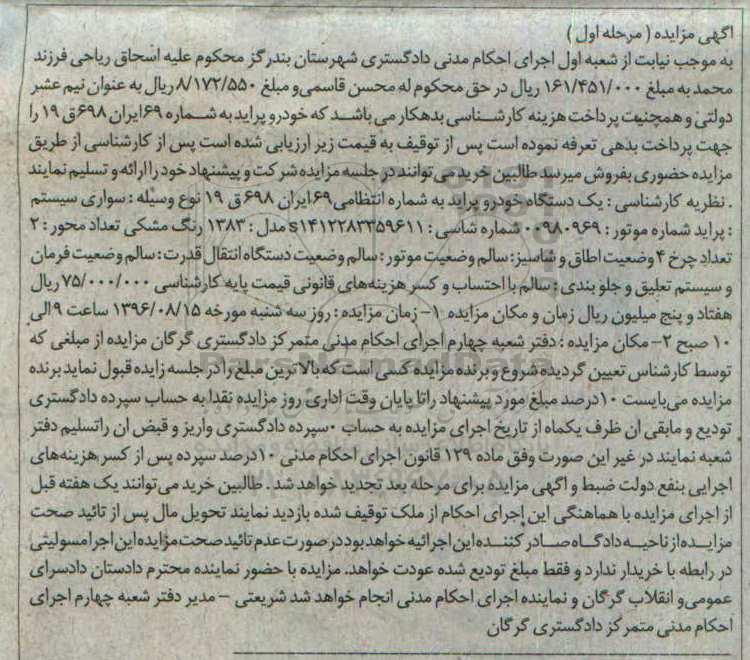 آگهی مزایده ( مرحله اول )
به موجب نیابت از شعبه اول اجرای احکام مدنی دادگستری شهرستان بندرگز محکوم علیه اسحاق ریاحی فرزند
محمد به مبلغ ۱۶۱/۴۵۱/۰۰۰ ریال در حق محکوم له محسن قاسمی و مبلغ ۸/۱۷۲/۵۵۰ ریال به عنوان نیم عشر
دولتی و همچنیت پرداخت هزینه کارشناسی بدهکار می باشد که خودرو پراید به شماره ۶۹ایران ۶۹۸ق ۱۹ را
جهت پرداخت بدهی تعرفه نموده است پس از توقیف به قیمت زیر ارزیابی شده است پس از کارشناسی از طریق
مزایده حضوری بفروش میرسد طالبین خرید می توانند در جلسه مزایده شرکت و پیشنهاد خود را ارائه و تسلیم نمایند
. نظریه کارشناسی : یک دستگاه خودرو پراید به شماره انتظامی ۶۹ایران ۶۹۸ ق ۱۹ نوع وسیله : سواری سیستم
: پراید شماره موتور : ۰۰۹۸۰۹۶۹ شماره شاسی : s۱۴۱۲۲۸۳۳۵۹۶۱۱ مدل : ۱۳۸۳ رنگ مشکی تعداد محور : ۲
تعداد چرخ ۴ وضعیت اطاق و شاسیز: سالم وضعیت موتور : سالم وضعیت دستگاه انتقال قدرت : سالم وضعیت فرمان
و سیستم تعلیق و جلو بندی : سالم با احتساب و کسر هزینه های قانونی قیمت پایه کارشناسی ۷۵/۰۰۰/۰۰۰ ریال
هفتاد و پنج میلیون ریال زمان و مکان مزایده ۱- زمان مزایده : روز سه شنبه مورخه ۱۳۹۶/۰۸/۱۵ ساعت ۹الی
۱۰ صبح ۲- مکان مزایده : دفتر شعبه چهارم اجرای احکام مدنی متمرکز دادگستری گرگان مزایده از مبلغی که
توسط کارشناس تعیین گردیده شروع و برنده مزایده کسی است که بالاترین مبلغ را در جلسه زایده قبول نماید برنده
مزایده می بایست ۱۰درصد مبلغ مورد پیشنهاد راتا پایان وقت اداری روز مزایده نقدا به حساب سپرده دادگستری
تودیع و مابقی ان ظرف یکماه از تاریخ اجرای مزایده به حساب ۰سپرده دادگستری واریز و قبض ان راتسلیم دفتر
شعبه نمایند در غیر این صورت وفق ماده ۱۲۹ قانون اجرای احکام مدنی ۱۰درصد سپرده پس از کسر هزینه های
اجرایی بنفع دولت ضبط و اگهی مزایده برای مرحله بعد تجدید خواهد شد . طالبین خرید می توانند یک هفته قبل
از اجرای مزایده با هماهنگی این اجرای احکام از ملک توقیف شده بازدید نمایند تحویل مال پس از تائید صحت
مزایده از ناحیه دادگاه صادر کننده این اجرائیه خواهد بود در صورت عدم تائید صحت مزایده این اجرا مسولیتی
در رابطه با خریدار ندارد و فقط مبلغ تودیع شده عودت خواهد. مزایده با حضور نماینده محترم دادستان دادسرای
عمومی و انقلاب گرگان و نماینده اجرای احکام مدنی انجام خواهد شد شریعتی - مدیر دفتر شعبه چهارم اجرای
احکام مدنی متمرکز دادگستری گرگان
ParsNamadData